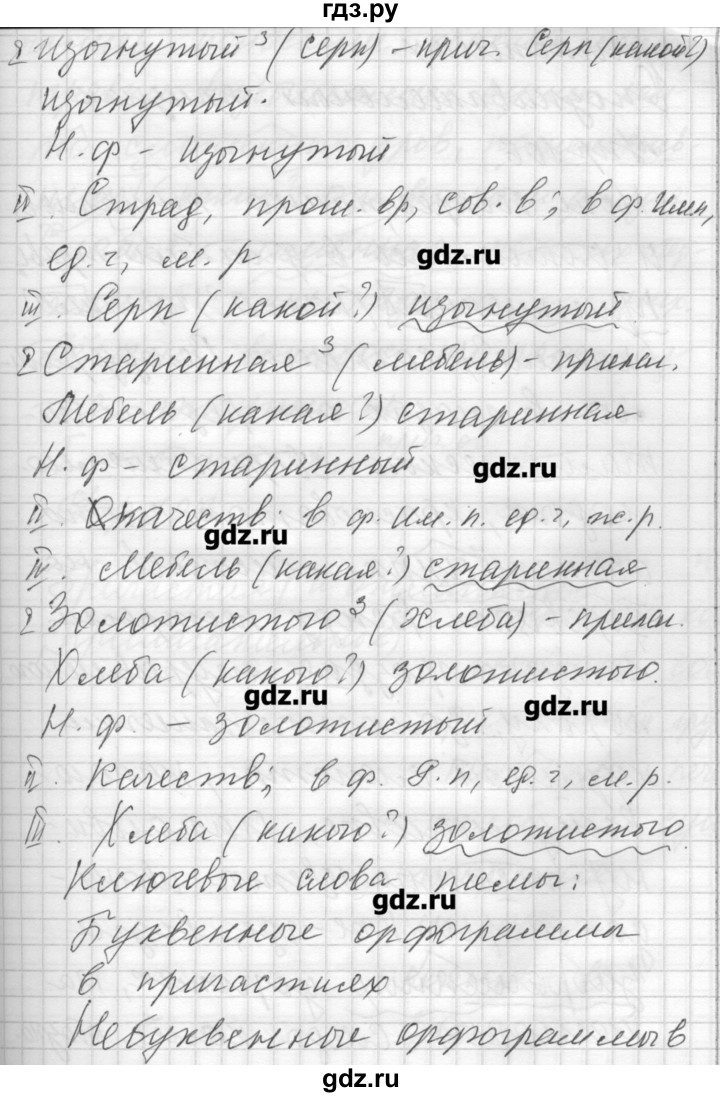 гдз.ру
I Изогнутый³ (серп) – прич. Серп (какой?)
изогнутый.
Н. ф – изогнутый
II. Страд, прош. вр, сов. в; в ф. имен,
ед. ч, м. р
gdz.ru
III. Серп (какой?) изогнутый
I Старинная³ (мебель) – прилаг.
Мебель (какая?) старинная
Н. ф – старинный
gdz.ru
II. качеств; в ф. им. п. ед. ч, ж. р.
gdz.ru
III. Мебель (какая?) старинная
I Золотистого³ (хлеба) – прилаг.
Хлеба (какого?) золотистого.
gdz.ru
gdz.ru
Н. ф. – золотистый
II. Качеств; в ф. Р. п, ед. ч, м. р.
III. Хлеба (какого?) золотистого
Ключевые слова темы:
gdz.ru
Буквенные орфограммы
в причастиях
Небуквенные орфограммы в
gdz.ru